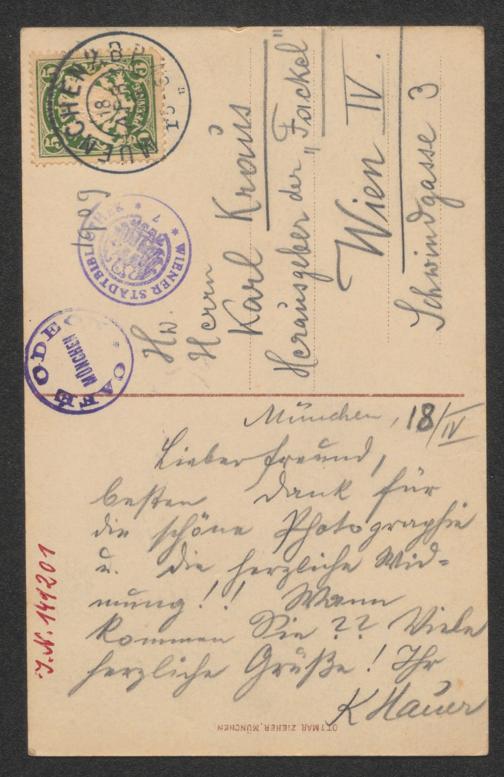 MUENCHEN
18
APR
5
5
1909
WIENER STADTBIBLIOTHEK
* 7 *
CAFÉ ODEON
MÜNCHEN
Hw.
Herrn
Karl Kraus
Herausgeber der „Fackel"
Wien IV.
Schwindgasse 3
München, 18/IV
Lieber Freund,
besten Dank für
die schöne Photographie
u. die herzliche Wid-
mung!! Wann
kommen Sie?? Viele
herzliche Grüße! Ihr
K Hauer
J.N. 141201
OTTMAR ZIEHER, MÜNCHEN